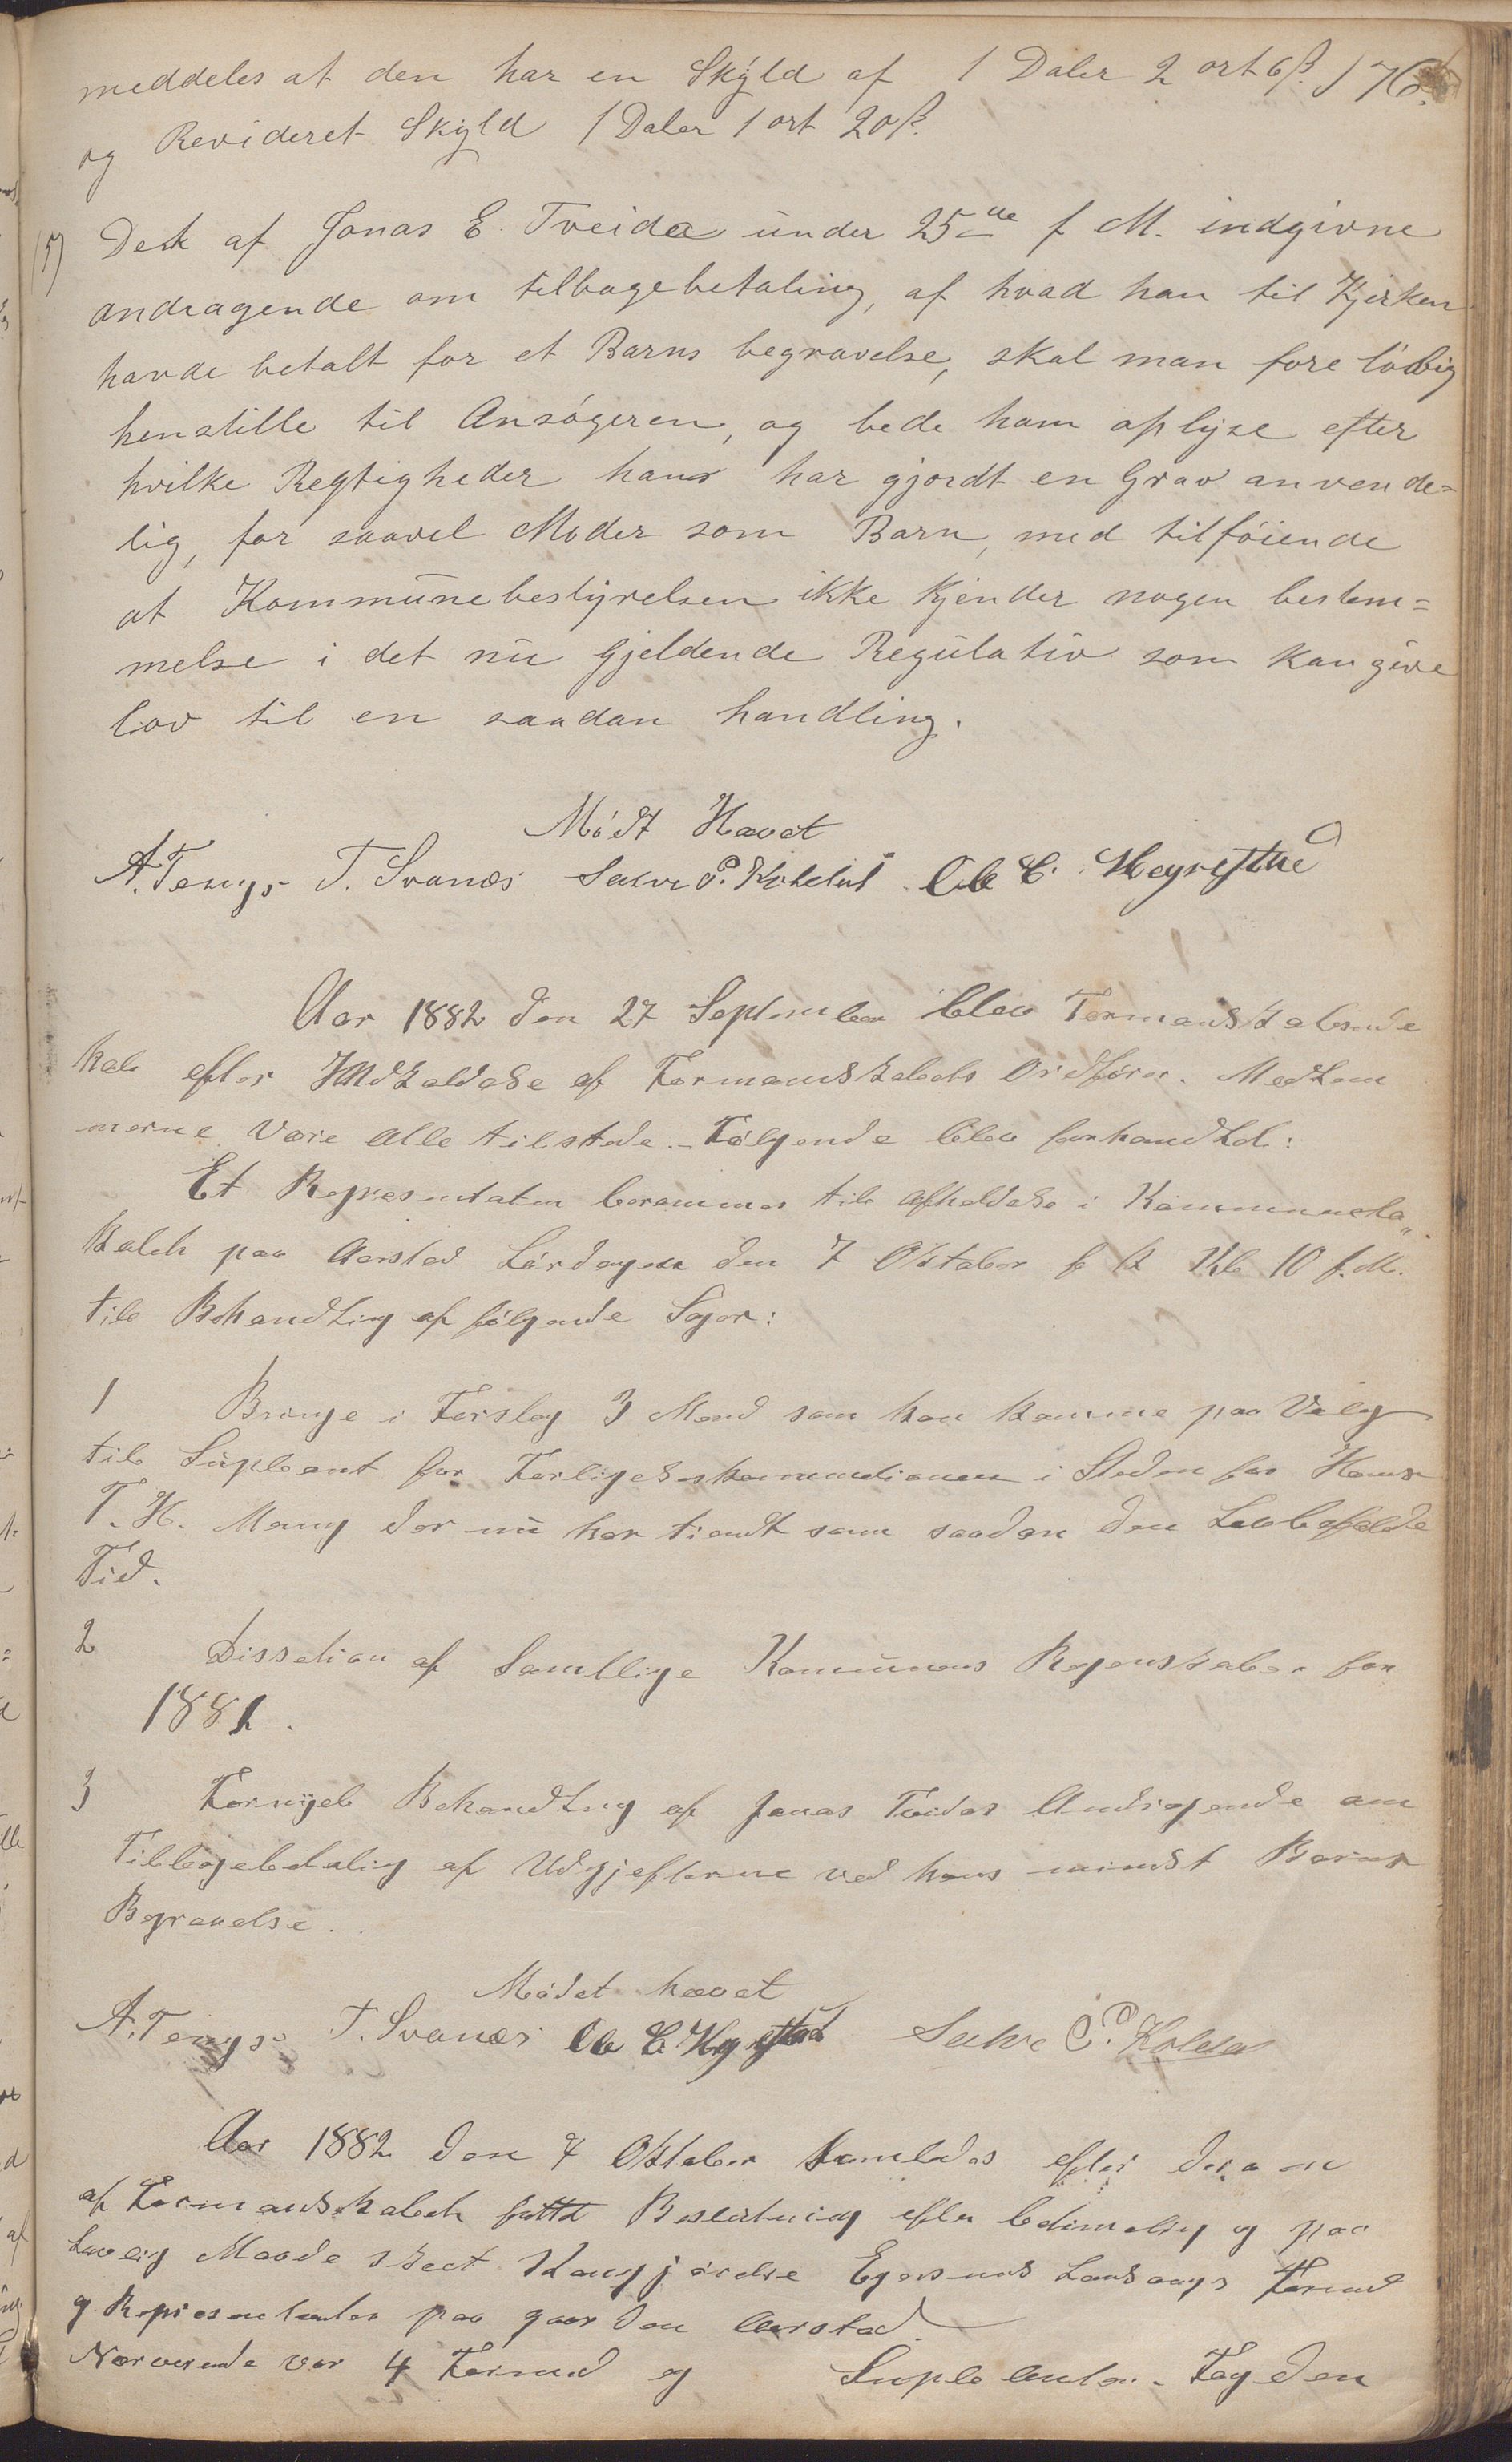 meddeles at den har en Skyld af 1 Daler 2 ort 6 ß. 176.
og Revideret Skyld 1 Daler 1 ort 20 ß.
5) Det af Jonas E. Tveida under 25de f M. indgivne
andragende om tilbagebetaling, af hvad han til Kjerken
havde betalt for et Barns begravelse, skal man foreløbig
henstille til Ansøgeren, og bede ham oplyse efter
hvilke Regtigheder han har gjordt en Grav anvende=
lig, for saavel Moder som Barn, med tilføiende
at Kommunebestyrelsen ikke Kjender nogen bestem=
melse i det nu Gjeldende Regulativ som kan give
lov til en saadan handling.
Mødt Hævet
A. Tengs T. Svanes Salve P. Koldal Ole C. Hegrestad
Aar 1882 den 27 September blev Formandskabsmøde
hold efter Indkaldelse af Formandskabets Ordfører. Medlem
merne Vare alle tilstede. Følgende blev forhandlet:
Et Representatm berammes til afholdelse i Kommunelo„
kalet paa Aarstad Lørdagen den 7 Oktober f k Kl 10 f.M.
til Behandling af følgende Sager:
1 Bringe i Forslag 3 Mend som kan komme paa Valg
til Supleant for Forligelseskommusionen i Steden for Hans
T. H. Maing der nu har tient som saadan den Lovbefalede
Tid.
2 Dissetion af Samtlige Kommunens Regenskaber for
1881.
3 Fornyet Behandling af Jonas Tveidas Andragende om
Tilbagebetaling af Udgjefterne ved hans mindst Barns
Begravelse.
Mødet hævet
A. Tengs T. Svanes Ole C Hegrestad Salve P. Koldal
Aar 1882 den 7 Oktober samledes efter derom
af Formandskabet fattet Beslutning efter betimelig og paa
Lovlig Maade skeet Kungjørelse Egersunds Landsogns Formend
g Representanter paa gaarden Aarstad.
Nærverende var 4 Formend og Supleanter. Fog den